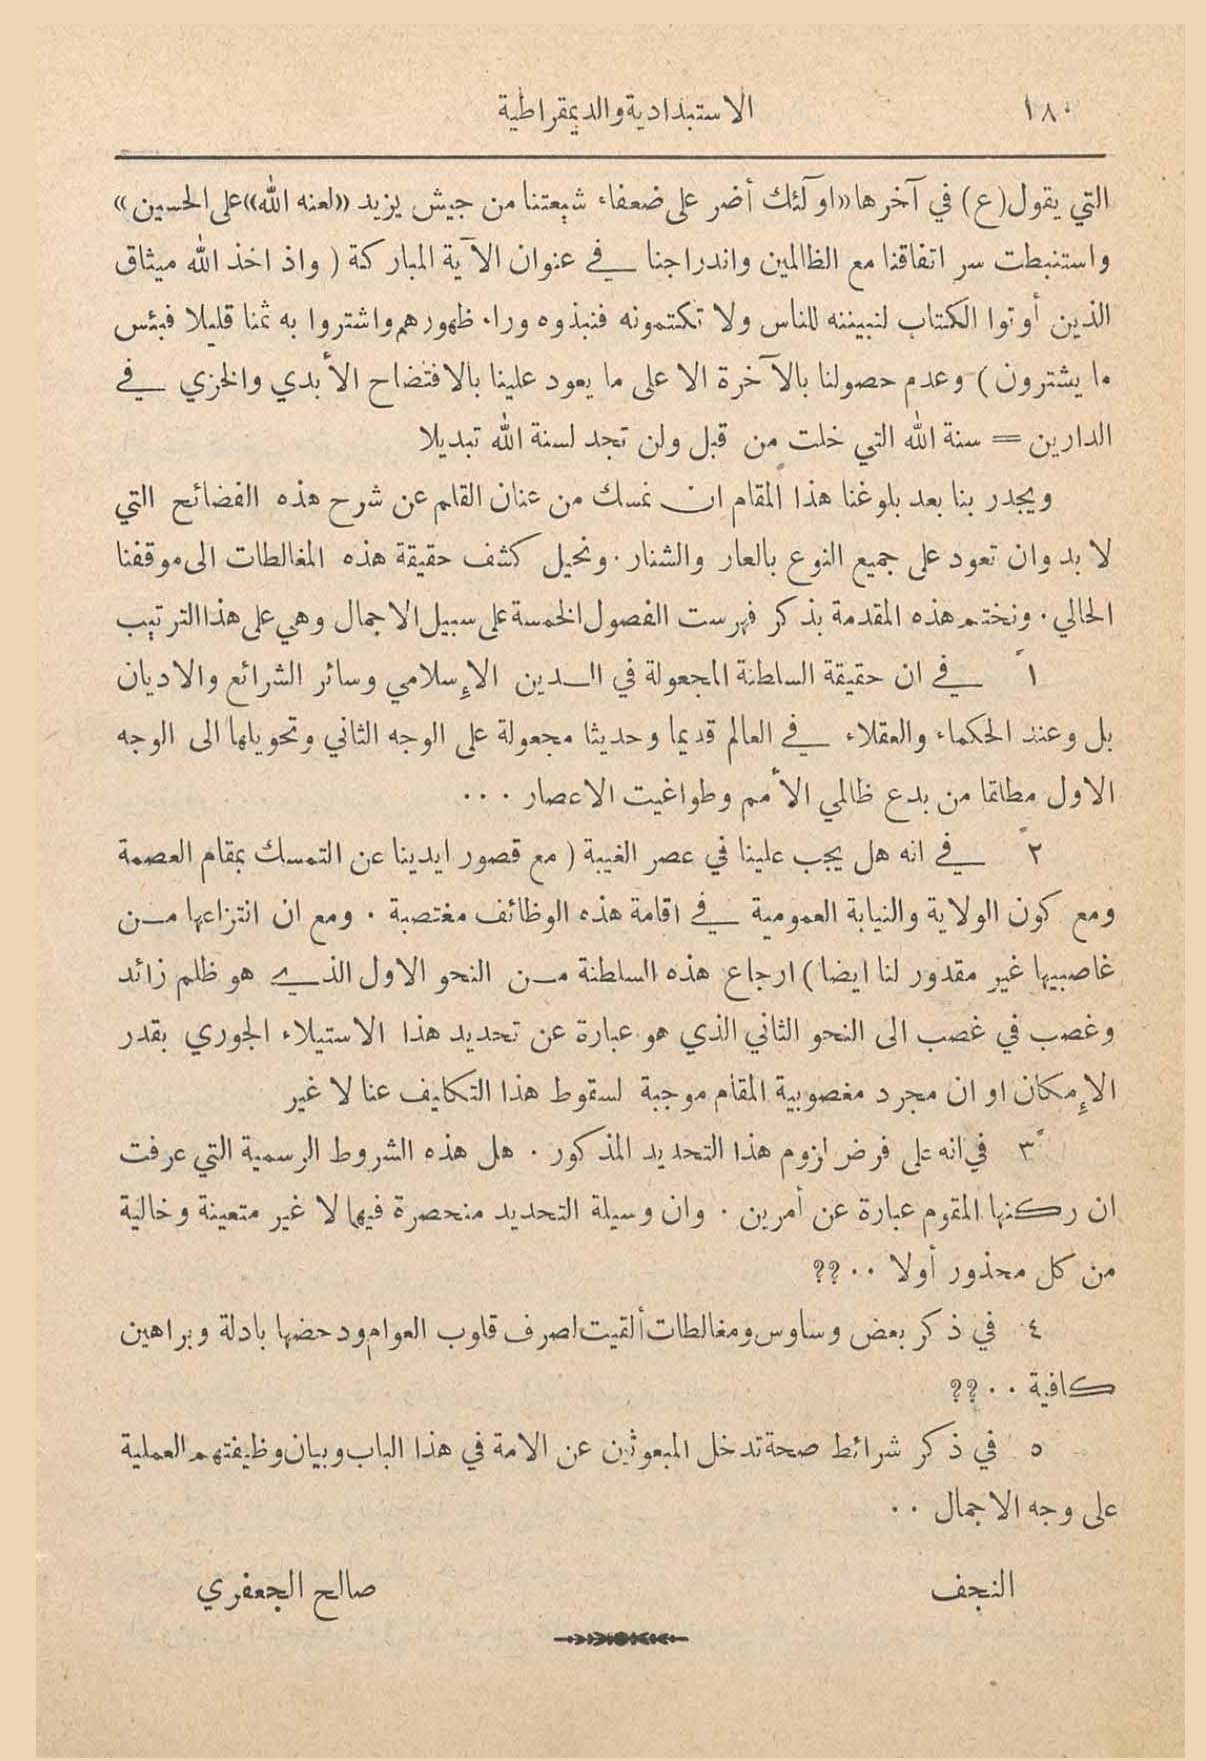 ١٨٠ الاستبدادية والديمقراطية
التي يقول (ع) في آخرها «اوآلئك أضر على ضعفاء شيعتنا من جيش يزيد «لعنه الله» على الحسين»
واستنبطت سر اتفاقنا مع الظالمين واندراجنا في عنوان الآية المباركة ( واذ اخذ الله ميثاق
الذين أوتوا الكتاب لنبيننه للناس ولا تكتمونه فنبذوه وراء ظهورهم واشتروا به ثمنا قليلا فبئس
ما يشترون ) وعدم حصولنا بالآخرة الا على ما يعود علينا بالافتضاح الأبدي والخزي في
الدارين = سنة الله التي خلت من قبل ولن تجد لسنة الله تبديلا
ويجدر بنا بعد بلوغنا هذا المقام ان نمسك من عنان القلم عن شرح هذه الفضائح التي
لا بد وان تعود على جميع النوع بالعار والشنار . ونحيل كشف حقيقة هذه المغالطات الى موقفنا
الحالي . ونختم هذه المقدمة بذكر فهرست الفصول الخمسة على سبيل الاجمال وهي على هذا الترتيب
١ً في ان حقيقة السلطنة المجعولة في الدين الإسلامي وسائر الشرائع والاديان
بل وعند الحكماء والعقلاء في العالم قديما وحديثا مجعولة على الوجه الثاني وتحويلها الى الوجه
الاول مطلقا من بدع ظالمي الأمم وطواغيت الاعصار . . .
٢ً في انه هل يجب علينا في عصر الغيبة ( مع قصور ايدينا عن التمسك بمقام العصمة
ومع كون الولاية والنيابة العمومية في اقامة هذه الوظائف مغتصبة . ومع ان انتزاعها من
غاصبيها غير مقدور لنا ايضا ) ارجاع هذه السلطنة من النحو الاول الذي هو ظلم زائد
وغصب في غصب الى النحو الثاني الذي هو عبارة عن تحديد هذا الاستيلاء الجوري بقدر
الإمكان او ان مجرد مغصوبية المقام موجبة لسقوط هذا التكليف عنا لا غير
٣ً في انه على فرض لزوم هذا التحديد المذكور . هل هذه الشروط الرسمية التي عرفت
ان ركنها المقوم عبارة عن أمرين . وان وسيلة التحديد منحصرة فيهما لا غير متعينة وخالية
من كل محذور أولا . . ؟؟
٤ في ذكر بعض وساوس ومغالطات ألقيت لصرف قلوب العوام ودحضها بادلة وبراهين
كافية . . ؟؟
٥ في ذكر شرائط صحة تدخل المبعوثين عن الامة في هذا الباب وبيان وظيفتهم العملية
على وجه الاجمال . .
النجف صالح الجعفري